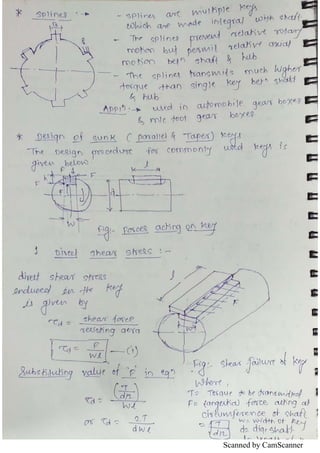 * Splines :-
- splines are multiple keys
which are made integral with shaft
- The splines prevent relative rotary
motion but permit relative axial
motion betn shaft & hub
- The splines transmits much higher
torque than single key betn shaft
& hub
Appln :- used in automobile gear boxes
& m/c tool gear boxes
* Design of sunk (parallel & Taper) keys
The design procedure for commonly used keys is
given below
F
F
l
h
F
d
W
Fig:- forces acting on key
1 Direct shear stress :-
direct shear stress
induced in the key
is given by
τd = shear force
resisting area
τd = F / Wl -(1)
l
F
W
Fig:- shear failure of key
Substituting value of 'F' in eqn
where,
τd = (T / d/2)
Wl
or τd = 2.T
dWl
T = Torque to be transmitted
F = tangential force acting at
circumference of shaft
= (T / d/2)
W = width of key
d = dia. shaft
Scanned by CamScanner